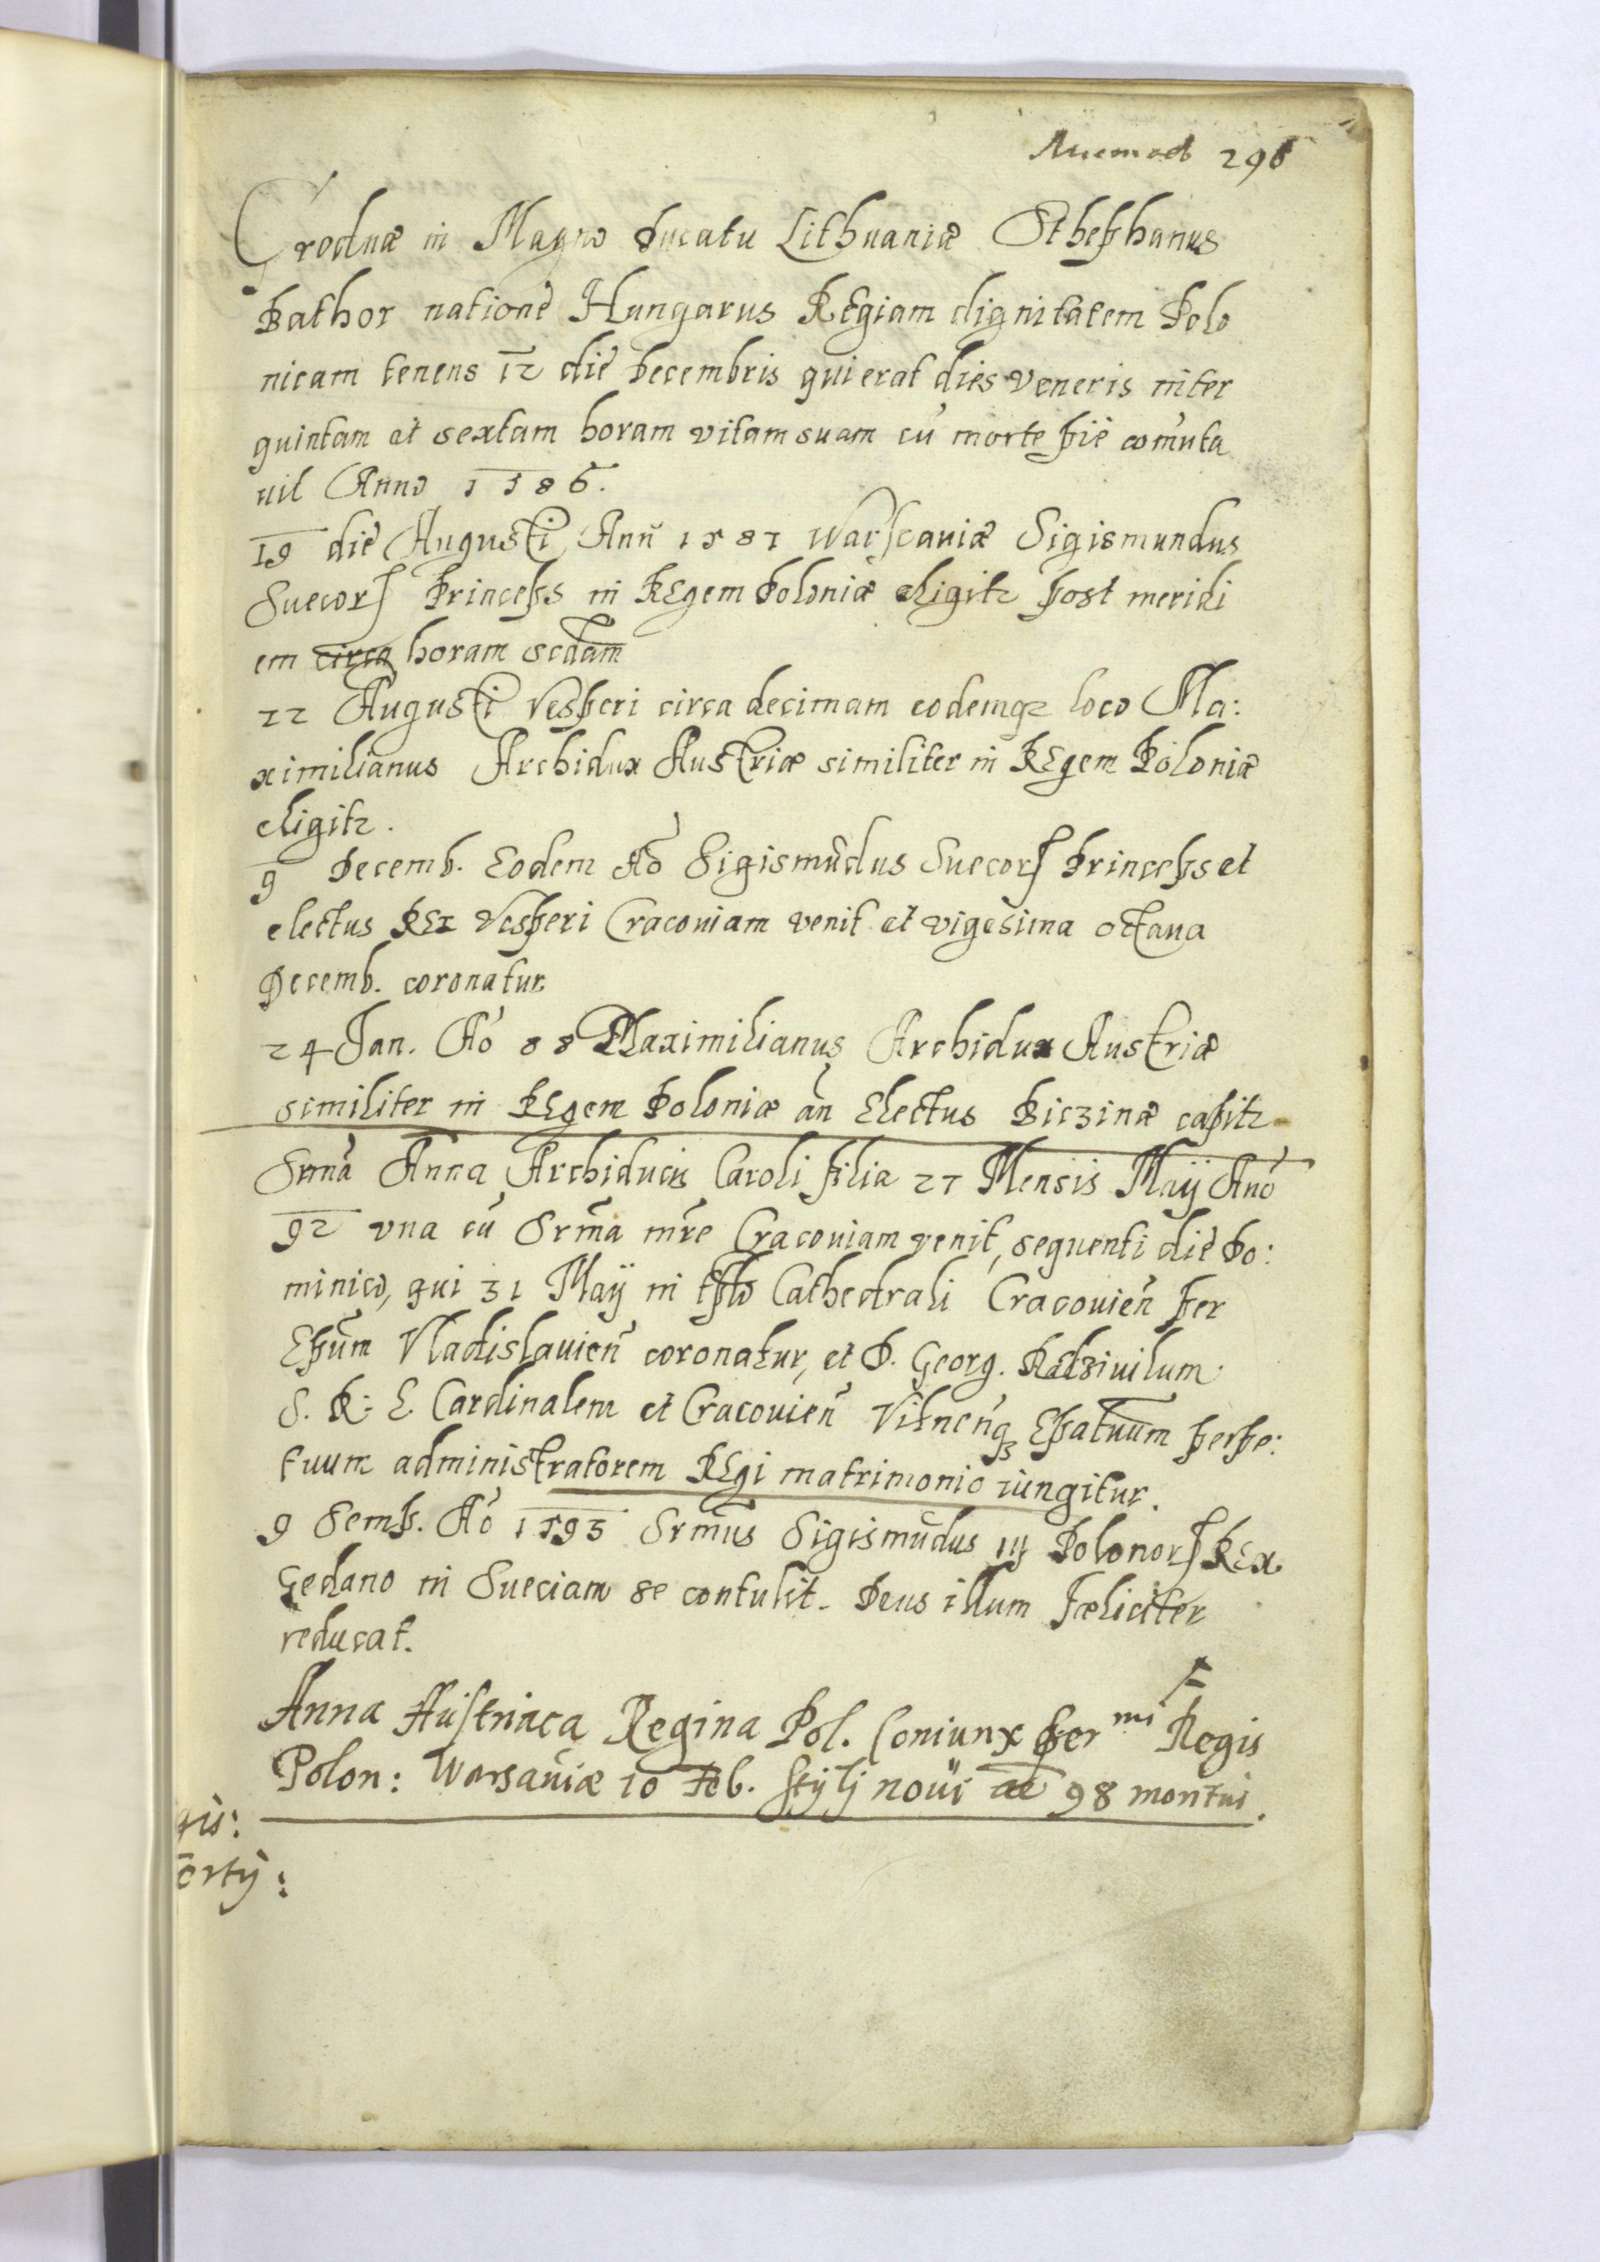 Листов 296
Grodnæ in Magno Ducatu Lithuaniæ Sthephanus
Bathor natione Hungarus Regiam dignitatem Polo
nicam tenens 12 die Decembris qui erat dies veneris inter
quintam et sextam horam vitam suam cū morte pie com̄uta
uit Anno 1586.
19 die Augusti Ann̄ 1587 Warscauiæ Sigismundus
Suecorꝝ Princeps in Regem Poloniæ eligitr post meridi
em circa horam scdam
22 Augusti Vesperi circa decimam eodemqꝫ loco Ma:
ximilianus Archidux Austriæ similiter in Regem Poloniæ
eligitr.
9 Decemb. Eodem Aō Sigismūdus Suecorꝝ Princeps et
electus Rex Vesperi Cracouiam venit et vigesima octaua
Decemb. coronatur
24 Jan. Aō 88 Maximilianus Archidux Austriæ
similiter in Regem Poloniæ an̄ Electus Biczinæ capitr
Srma Anna Archiducis Caroli filia 27 Mensis Maij Anō
92 vna cū Srm̄a mr̄e Cracouiam venit, sequenti die Do:
minico, qui 31 Maij in tp̄lo Cathedrali Cracouien̄ per
Epūm Vladislauien̄ coronatur, et D. Georg. Radziuilum
S. R: E Cardinalem et Cracouien̄ Vilnen̄qꝫ Ep̄atuum perpe:
tuum administratorem Regi matrimonio iungitur.
9 Semp. Aō 1593 Srm̄us Sigismūdus iij Polonorꝝ Rex
Gedano in Sueciam se contulit. Deus illum fæliciter
reducat.
Anna Austriaca Regina Pol. Coniunx Ser mi Regis
Polon: Warsauiæ 10 Feb. styly noui aō 98 mortui.
gis:
ortij: